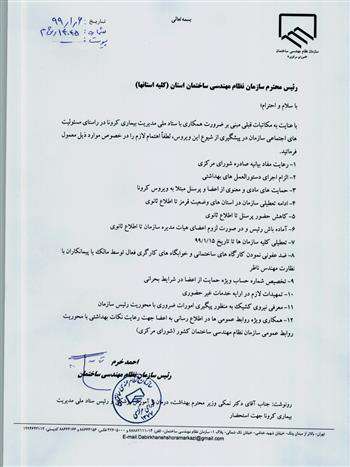 بسمه تعالی
تاریخ: ۹۹/۱/۶
سازمان نظام مهندسی ساختمان
(شورای مرکزی)
رئیس محترم سازمان نظام مهندسی ساختمان استان (کلیه استانها)
با سلام و احترام؛
با عنایت به مکاتبات قبلی مبنی بر ضرورت همکاری با ستاد ملی مدیریت بیماری کرونا در راستای مسئولیت
های اجتماعی سازمان در پیشگیری از شیوع این ویروس، لطفاً اهتمام لازم را در خصوص موارد ذیل معمول
فرمائید.
۱- رعایت مفاد بیانیه صادره شورای مرکزی
۲- الزام اجرای دستورالعمل های بهداشتی
۳- حمایت های مادی و معنوی از اعضا و پرسنل مبتلا به ویروس کرونا
۴- ادامه تعطیلی سازمان در استان های وضعیت قرمز تا اطلاع ثانوی
۵- کاهش حضور پرسنل تا اطلاع ثانوی
۶- آماده باش رئیس و در صورت لزوم اعضای هیات مدیره سازمان تا اطلاع ثانوی
۷- تعطیلی کلیه سازمان ها تا تاریخ ۹۹/۱/۱۵
۸- ضد عفونی نمودن کارگاه های ساختمانی و خوابگاه های کارگری فعال توسط مالک یا پیمانکاران با
نظارت مهندس ناظر
۹- تخصیص شماره حساب ویژه حمایت از اعضا در شرایط بحرانی
۱۰- تمهیدات لازم در ارایه خدمات غیر حضوری
۱۱- معرفی نیروی کشیک به منظور پیگیری امورات ضروری با محوریت رئیس سازمان
۱۲- همکاری ویژه روابط عمومی ها در اطلاع رسانی به اعضا جهت رعایت نکات بهداشتی با محوریت
روابط عمومی سازمان نظام مهندسی ساختمان کشور (شورای مرکزی)
احمد خرم
رئیس سازمان نظام مهندسی ساختمان
رونوشت: جناب آقای دکتر نمکی وزیر محترم بهداشت، درمان و آموزش رئیس ستاد ملی مدیریت
بیماری کرونا جهت استحضار
E-mail:Dabirkhanehshoramarkazi@gmail.com